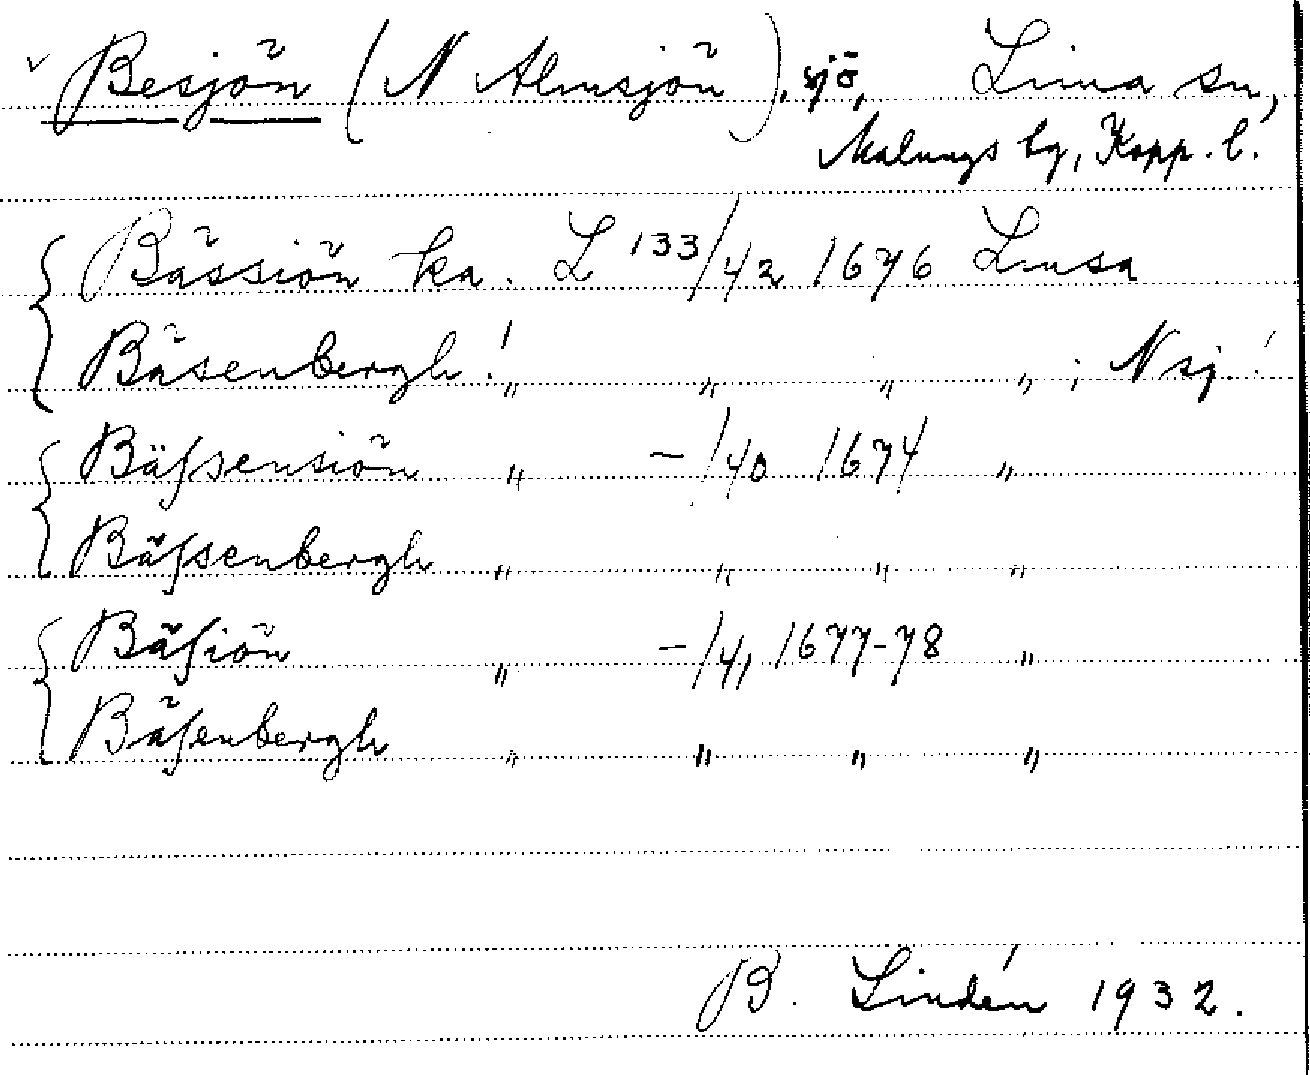 v Besjön (N Almsjön), sjö, Lima sn,
Malungs tg, Kopp. l.
Bässiön ka. L 133/42 1676 Limsa
Bäsenbergh! " " " " ; N sj.!
Bäſsensiön " -/40 1674 "
Bäſsenbergh " " " "
Bäſiön " -/41 1677-78 "
Bäſenbergh " " " "
B. Lindén 1932.